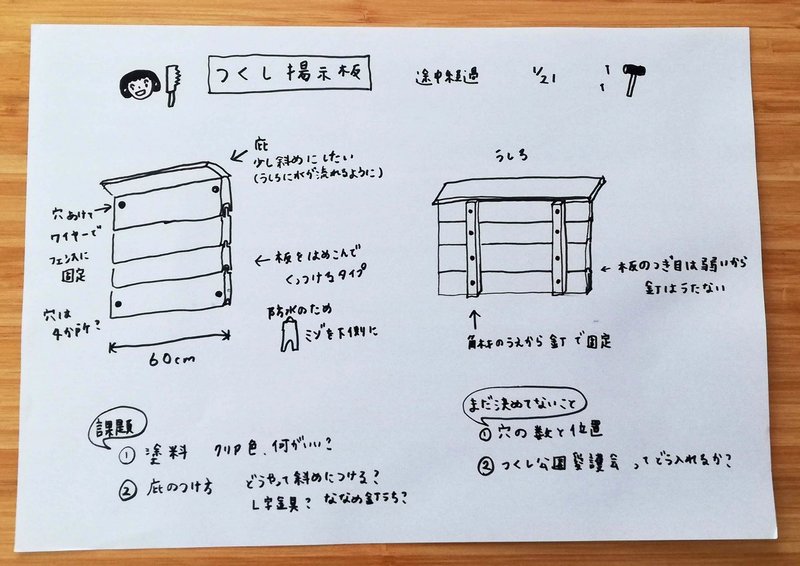 つくし掲示板
途中経過 1/21
庇
少し斜めにしたい
(うしろに水が流れるように)
穴あけて
ワイヤーで
フェンスに
固定
穴は
4か所?
← 板をはめこんで
くっつけるタイプ
防水のため
ミゾを下側に
60cm
うしろ
← 板のつぎ目は弱いから
釘はうたない
角材のうえから釘で固定
課題
① 塗料 クリア色、何がいい?
② 庇のつけ方 どうやって斜めにつける?
L字金具? ななめ釘うち?
まだ決めてないこと
① 穴の数と位置
② つくし公園愛護会 ってどう入れるか?